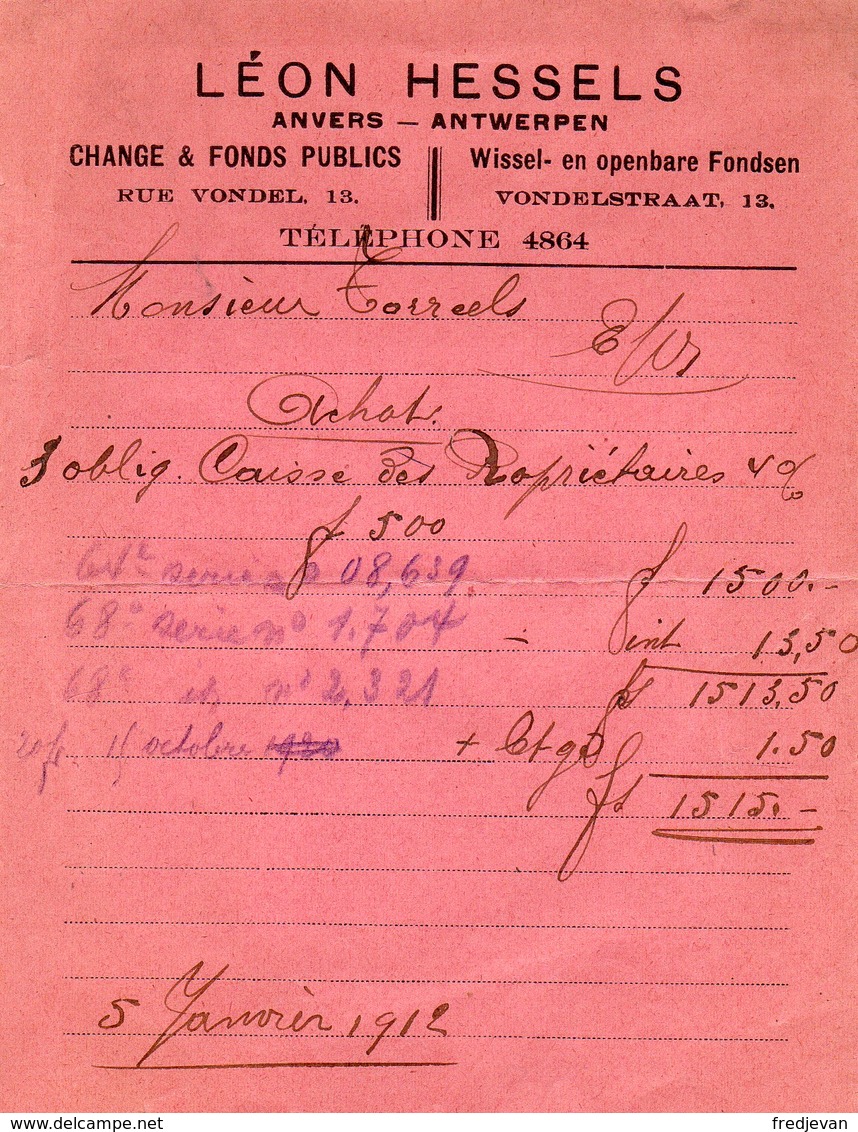 LÉON HESSELS
ANVERS — ANTWERPEN
CHANGE & FONDS PUBLICS
RUE VONDEL, 13.
Wissel- en openbare Fondsen
VONDELSTRAAT, 13.
TÉLÉPHONE 4864
Monsieur
E/V
Achat.
3 oblig. Caisse des Propriétaires 4%
f 500
64e serie n° 08,639
f 1500.-
68e serie n° 1.704
- int 13,50
68e id n° 2,321
fs 1513,50
octobre 1920
+ Ctge 1.50
fs 1515.-
5 Janvier 1912
delcampe.net
fredjevan